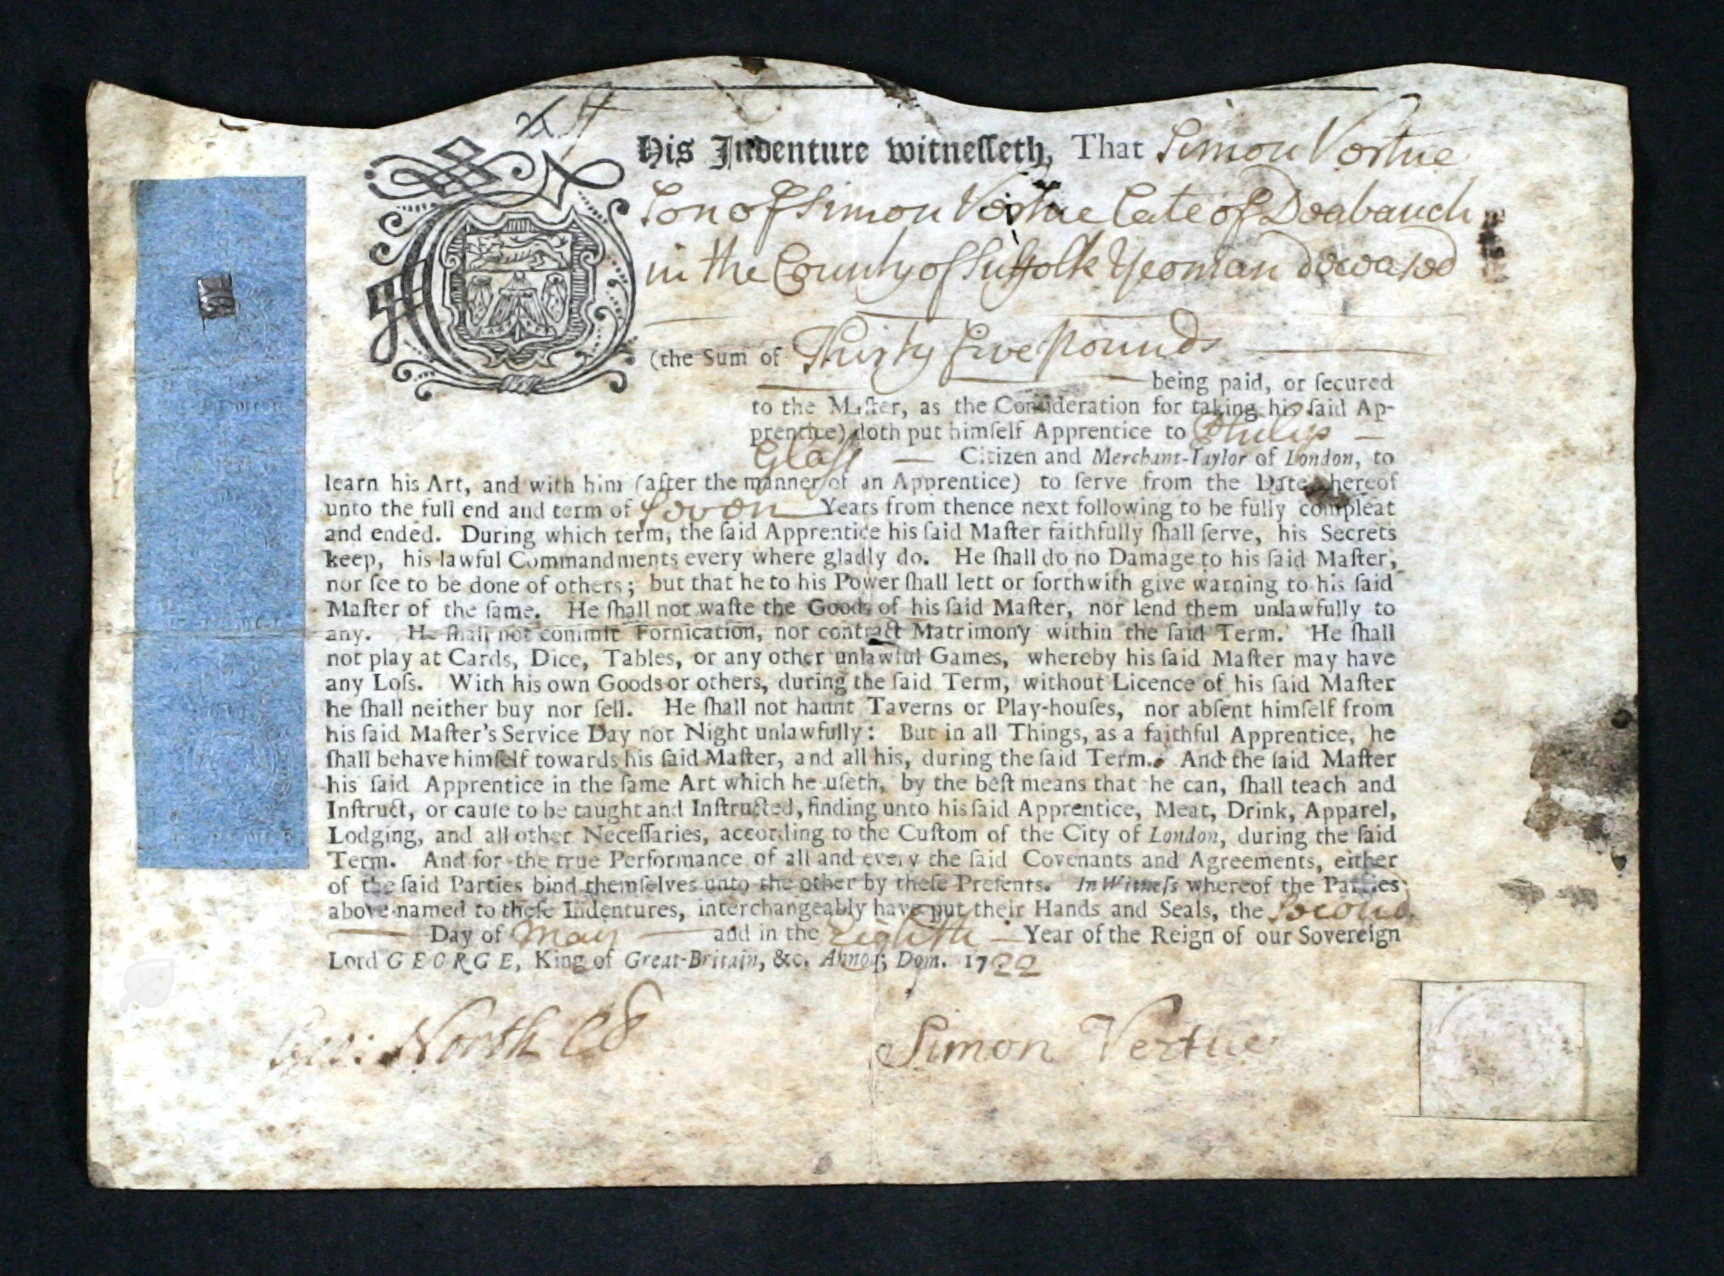 His Indenture witnesseth, That Simon Vertue
Son of Simon Vertue late of Debauch
in the County of Suffolk Yeoman deceased
(the Sum of Thirty five pounds
being paid, or ſecured
to the Maſter, as the Conſideration for taking his ſaid Ap-
prentice) doth put himſelf Apprentice to Philip
Glaſſ — Citizen and Merchant-Taylor of London, to
learn his Art, and with him (after the manner of an Apprentice) to ſerve from the Date hereof
unto the full end and term of Seven Years from thence next following to be fully compleat
and ended. During which term, the ſaid Apprentice his ſaid Maſter faithfully ſhall ſerve, his Secrets
keep, his lawful Commandments every where gladly do. He ſhall do no Damage to his ſaid Maſter,
nor ſee to be done of others; but that he to his Power ſhall lett or forthwith give warning to his ſaid
Maſter of the ſame. He ſhall not waſte the Goods of his ſaid Maſter, nor lend them unlawfully to
any. He ſhall not commit Fornication, nor contract Matrimony within the ſaid Term. He ſhall
not play at Cards, Dice, Tables, or any other unlawful Games, whereby his ſaid Maſter may have
any Loſs. With his own Goods or others, during the ſaid Term, without Licence of his ſaid Maſter
he ſhall neither buy nor ſell. He ſhall not haunt Taverns or Play-houſes, nor abſent himſelf from
his ſaid Maſter's Service Day nor Night unlawfully: But in all Things, as a faithful Apprentice, he
ſhall behave himſelf towards his ſaid Maſter, and all his, during the ſaid Term. And the ſaid Maſter
his ſaid Apprentice in the ſame Art which he uſeth, by the beſt means that he can, ſhall teach and
Inſtruct, or cauſe to be taught and Inſtructed, finding unto his ſaid Apprentice, Meat, Drink, Apparel,
Lodging, and all other Neceſſaries, according to the Cuſtom of the City of London, during the ſaid
Term. And for the true Performance of all and every the ſaid Covenants and Agreements, either
of the ſaid Parties bind themſelves unto the other by theſe Preſents. In Witneſs whereof the Parties
above-named to theſe Indentures, interchangeably have put their Hands and Seals, the Second
— Day of May — and in the Eighth — Year of the Reign of our Sovereign
Lord GEORGE, King of Great-Britain, &c. Annoq; Dom. 1722
North Simon Vertue